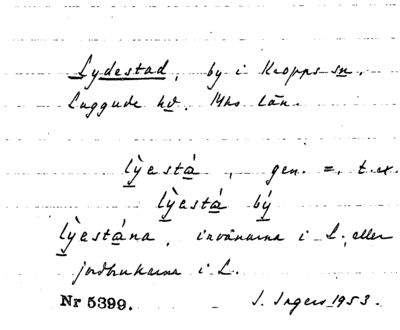 Lydestad, by i Kropps sn,
Luggude hd. Mhs län.
lỳestá, gen. =, t.ex.
lỳestá bý
lỳestána, invånarna i L. eller
jordbrukarna i L.
Nr 5399. I. Ingers 1953.